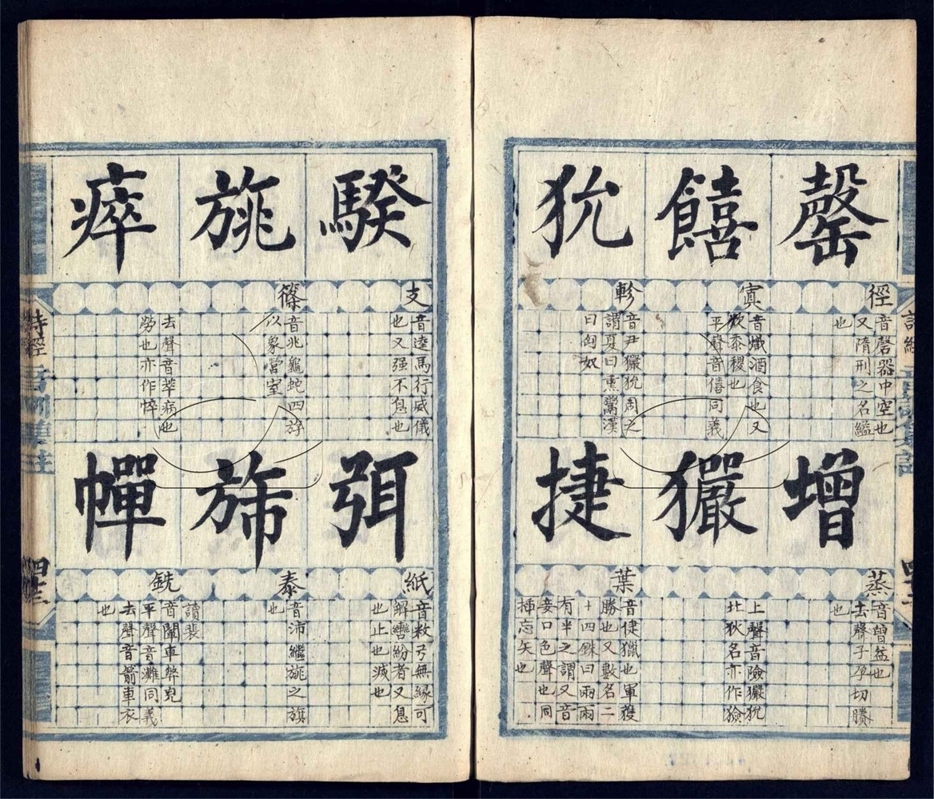 罄
徑
音磬器中空也
又隋刑之名縊
也
增
蒸
音曾益也
去聲子孕切賸
也
饎
寘
音熾酒食也又
炊黍稷也
平聲音僖同義
玁
上聲音險玁狁
北狄名亦作獫
狁
軫
音尹玁狁周之
謂夏曰熏鬻漢
曰匈奴
捷
葉
音倢獵也軍獲
勝也又數名二
十四銖曰兩兩
有半之謂又音
妾口色聲也同
挿忘矢也
騤
支
音逵馬行威儀
也又强不息也
弭
紙
音敉弓無緣可
解轡紛者又息
也止也滅也
旐
篠
音兆龜蛇四斿
以象營室
旆
泰
音沛繼旐之旗
也
瘁
去聲音萃病也
勞也亦作悴
幝
銑
讀裴
音闡車弊皃
平聲音灘同義
去聲音箭車衣
也
詩經
四十二
詩經
四十三